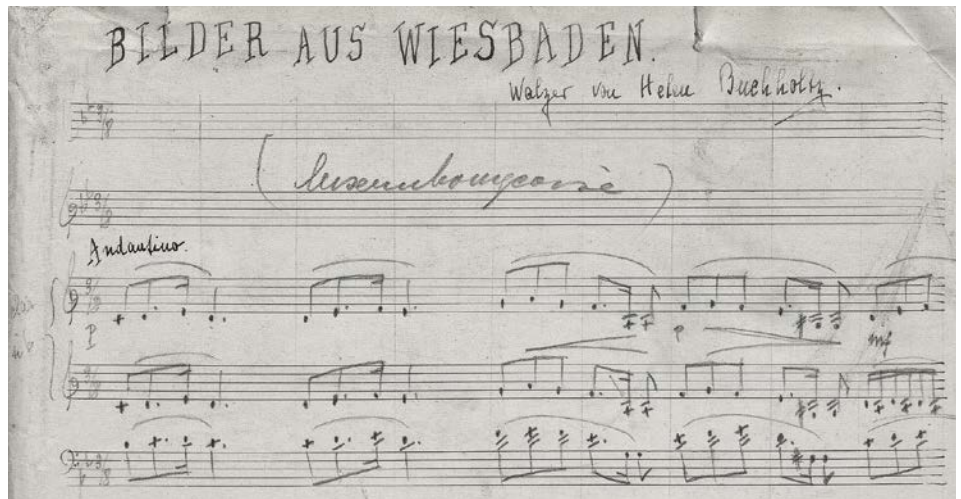 BILDER AUS WIESBADEN.
Walzer von Helen Buchholtz.
(Luxembourgeoise)
Andantino.
p
p
mf